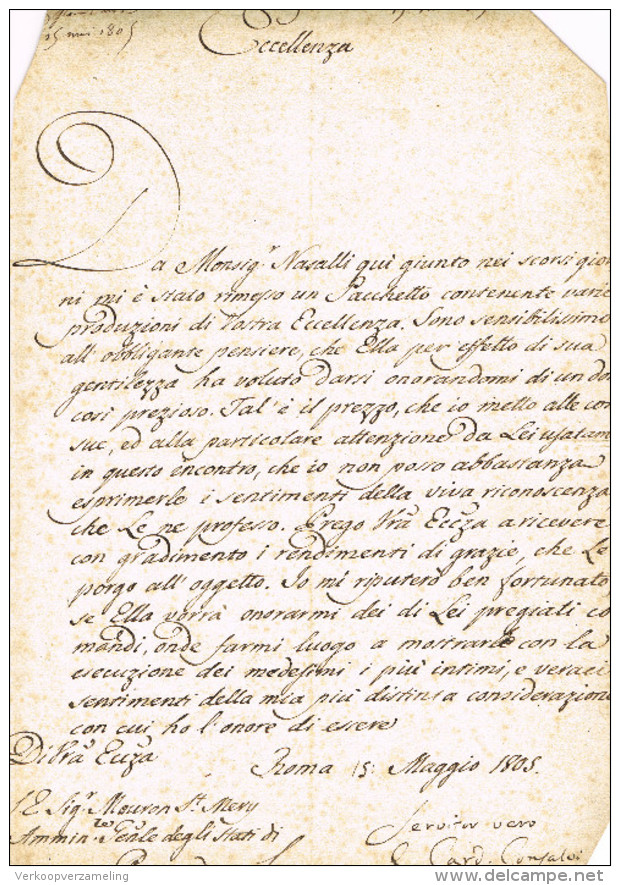 15 mai 1805
Eccellenza
Da Monsig.r Nasalli quì giunto nei scorsi gior
ni mi è stato rimesso un Pacchetto contenente varie
produzioni di Vostra Eccellenza. Sono sensibilissimo
all' obbligante pensiere, che Ella per effetto di sua
gentilezza ha voluto darsi onorandomi di un don
così prezioso. Tal' è il prezzo, che io metto alle cose
sue, ed alla particolare attenzione da Lei usatami
in questo incontro, che io non posso abbastanza
esprimerle i sentimenti della viva riconoscenza
che Le ne professo. Prego Vrã Eccza a ricevere
con gradimento i rendimenti di grazie, che Le
porgo all' oggetto. Io mi riputerò ben fortunato
se Ella vorrà onorarmi dei di Lei pregiati co
mandi, onde farmi luogo a mostrarle con la
esecuzione dei medesimi i più intimi, e veraci
sentimenti della mia più distinta considerazione
con cui ho l'onore di essere
Di Vrã Eccza
Roma 15 Maggio 1805.
S.E. Sig.r Moreau St. Mery
Ammin.re Gñle degli Stati di
Servitor vero
E. Card. Consalvi
Verkoopverzameling
delcampe.net